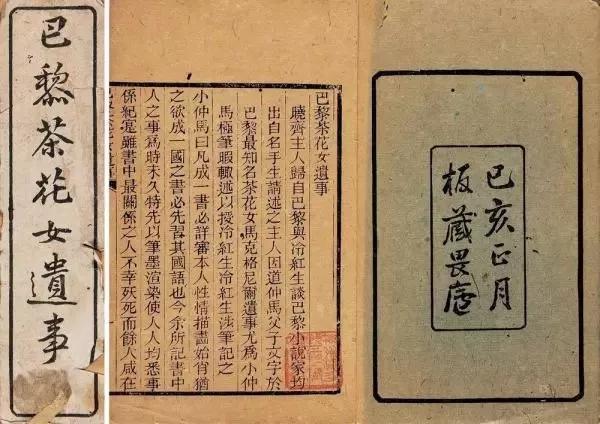 巴黎茶花女遺事
巴黎茶花女遺事
曉齋主人歸自巴黎與冷紅生談巴黎小說家均
出自名手生請述之主人因道仲馬父子文字於
巴黎最知名茶花女馬克格尼爾遺事尤爲小仲
馬極筆暇輙述以授冷紅生冷紅生涉筆記之
小仲馬曰凡成一書必詳審本人性情描畫始肖猶
之欲成一國之書必先習其國語也今余所記書中
人之事爲時未久特先以筆墨渲染使人人均悉事
係紀實雖書中最關係之人不幸殀死而餘人咸在
己亥正月
板藏畏廬